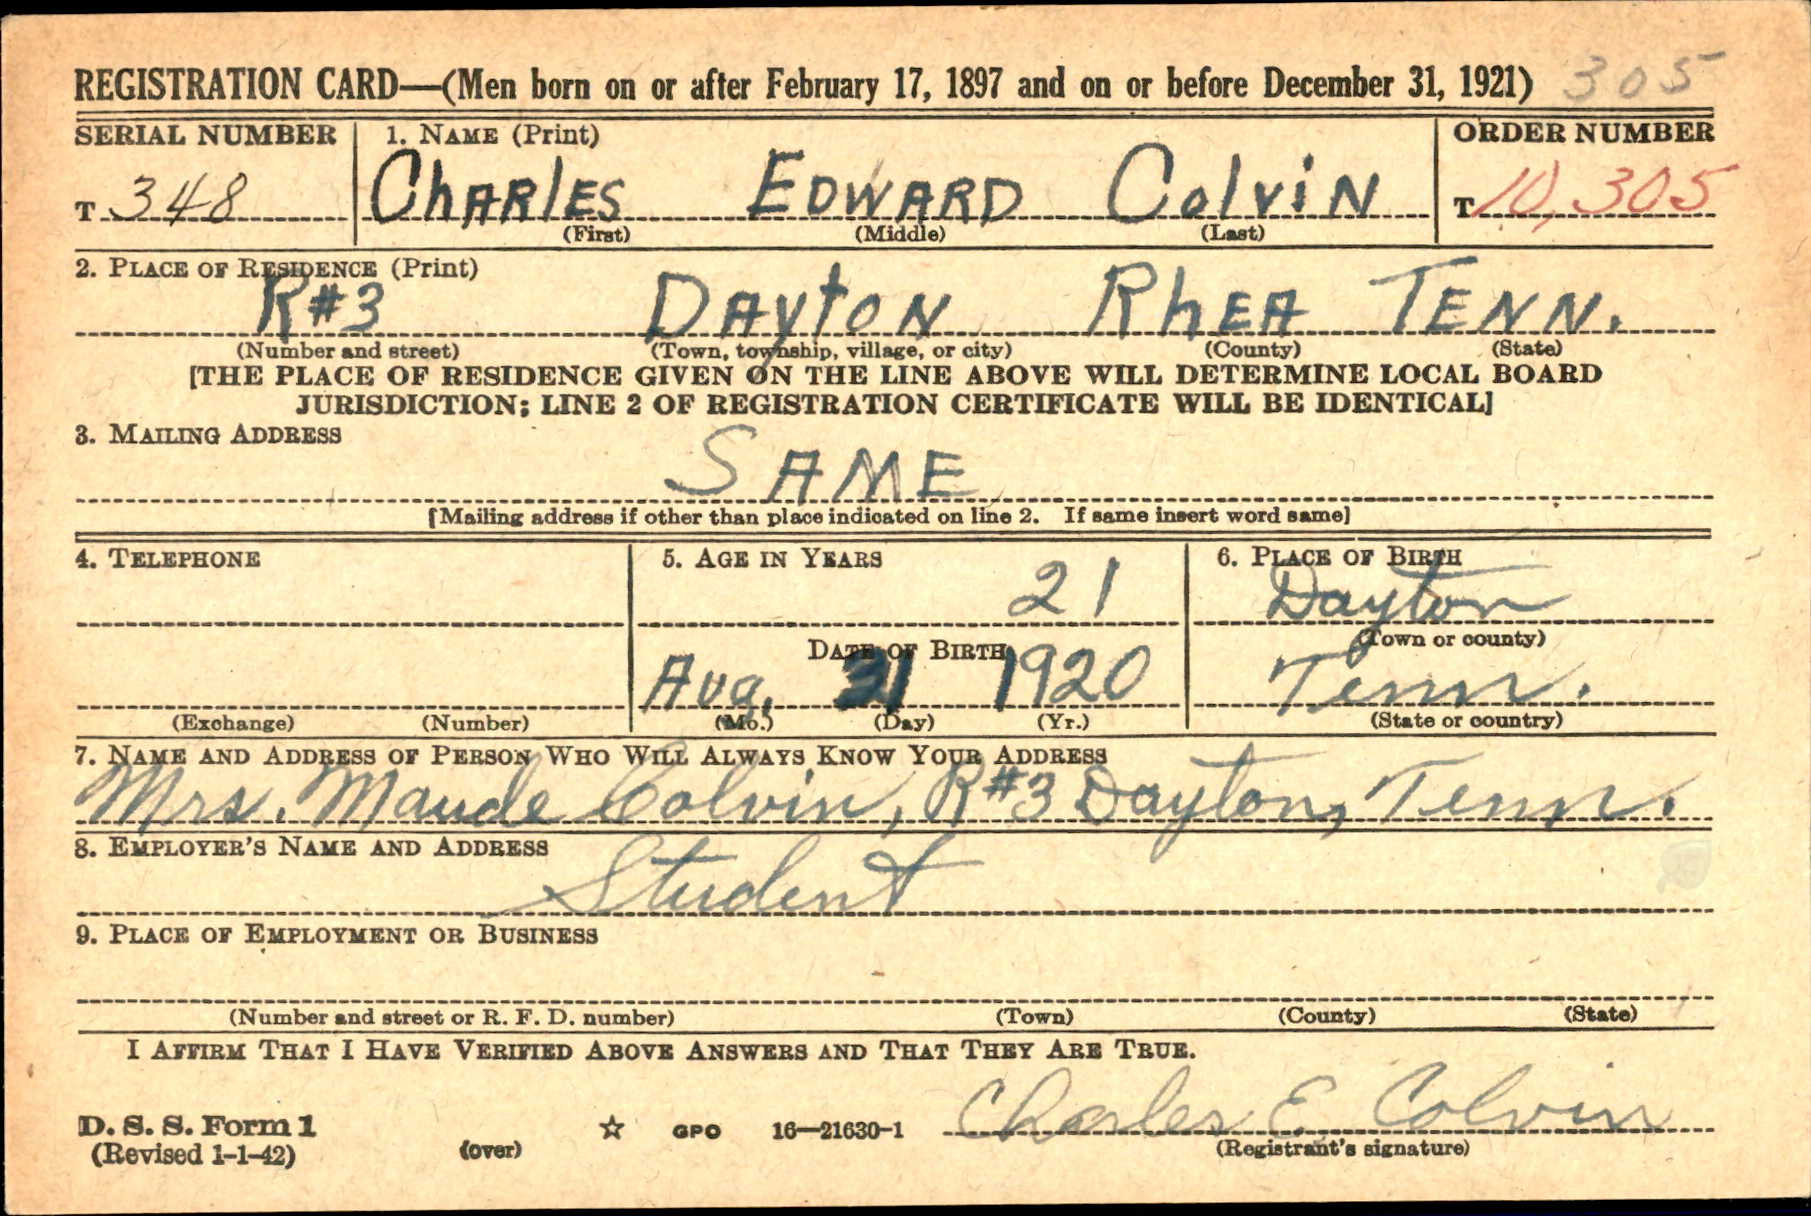 REGISTRATION CARD—(Men born on or after February 17, 1897 and on or before December 31, 1921) 305
SERIAL NUMBER 1. NAME (Print) ORDER NUMBER
T 348 ChARlES EDWARD ColviN T 10,305
(First) (Middle) (Last)
2. PLACE OF RESIDENCE (Print)
R#3 DAytoN RhEA TENN.
(Number and street) (Town, township, village, or city) (County) (State)
[THE PLACE OF RESIDENCE GIVEN ON THE LINE ABOVE WILL DETERMINE LOCAL BOARD
JURISDICTION; LINE 2 OF REGISTRATION CERTIFICATE WILL BE IDENTICAL]
3. MAILING ADDRESS
SAME
[Mailing address if other than place indicated on line 2. If same insert word same]
4. TELEPHONE 5. AGE IN YEARS 6. PLACE OF BIRTH
21 Dayton
DATE OF BIRTH (Town or county)
Aug. 31 1920 Tenn.
(Exchange) (Number) (Mo.) (Day) (Yr.) (State or country)
7. NAME AND ADDRESS OF PERSON WHO WILL ALWAYS KNOW YOUR ADDRESS
Mrs. Maude Colvin, R#3 Dayton, Tenn.
8. EMPLOYER'S NAME AND ADDRESS
Student
9. PLACE OF EMPLOYMENT OR BUSINESS
(Number and street or R. F. D. number) (Town) (County) (State)
I AFFIRM THAT I HAVE VERIFIED ABOVE ANSWERS AND THAT THEY ARE TRUE.
Charles E Colvin
D. S. S. Form 1 ☆ GPO 16—21630-1
(Revised 1-1-42) (over) (Registrant's signature)